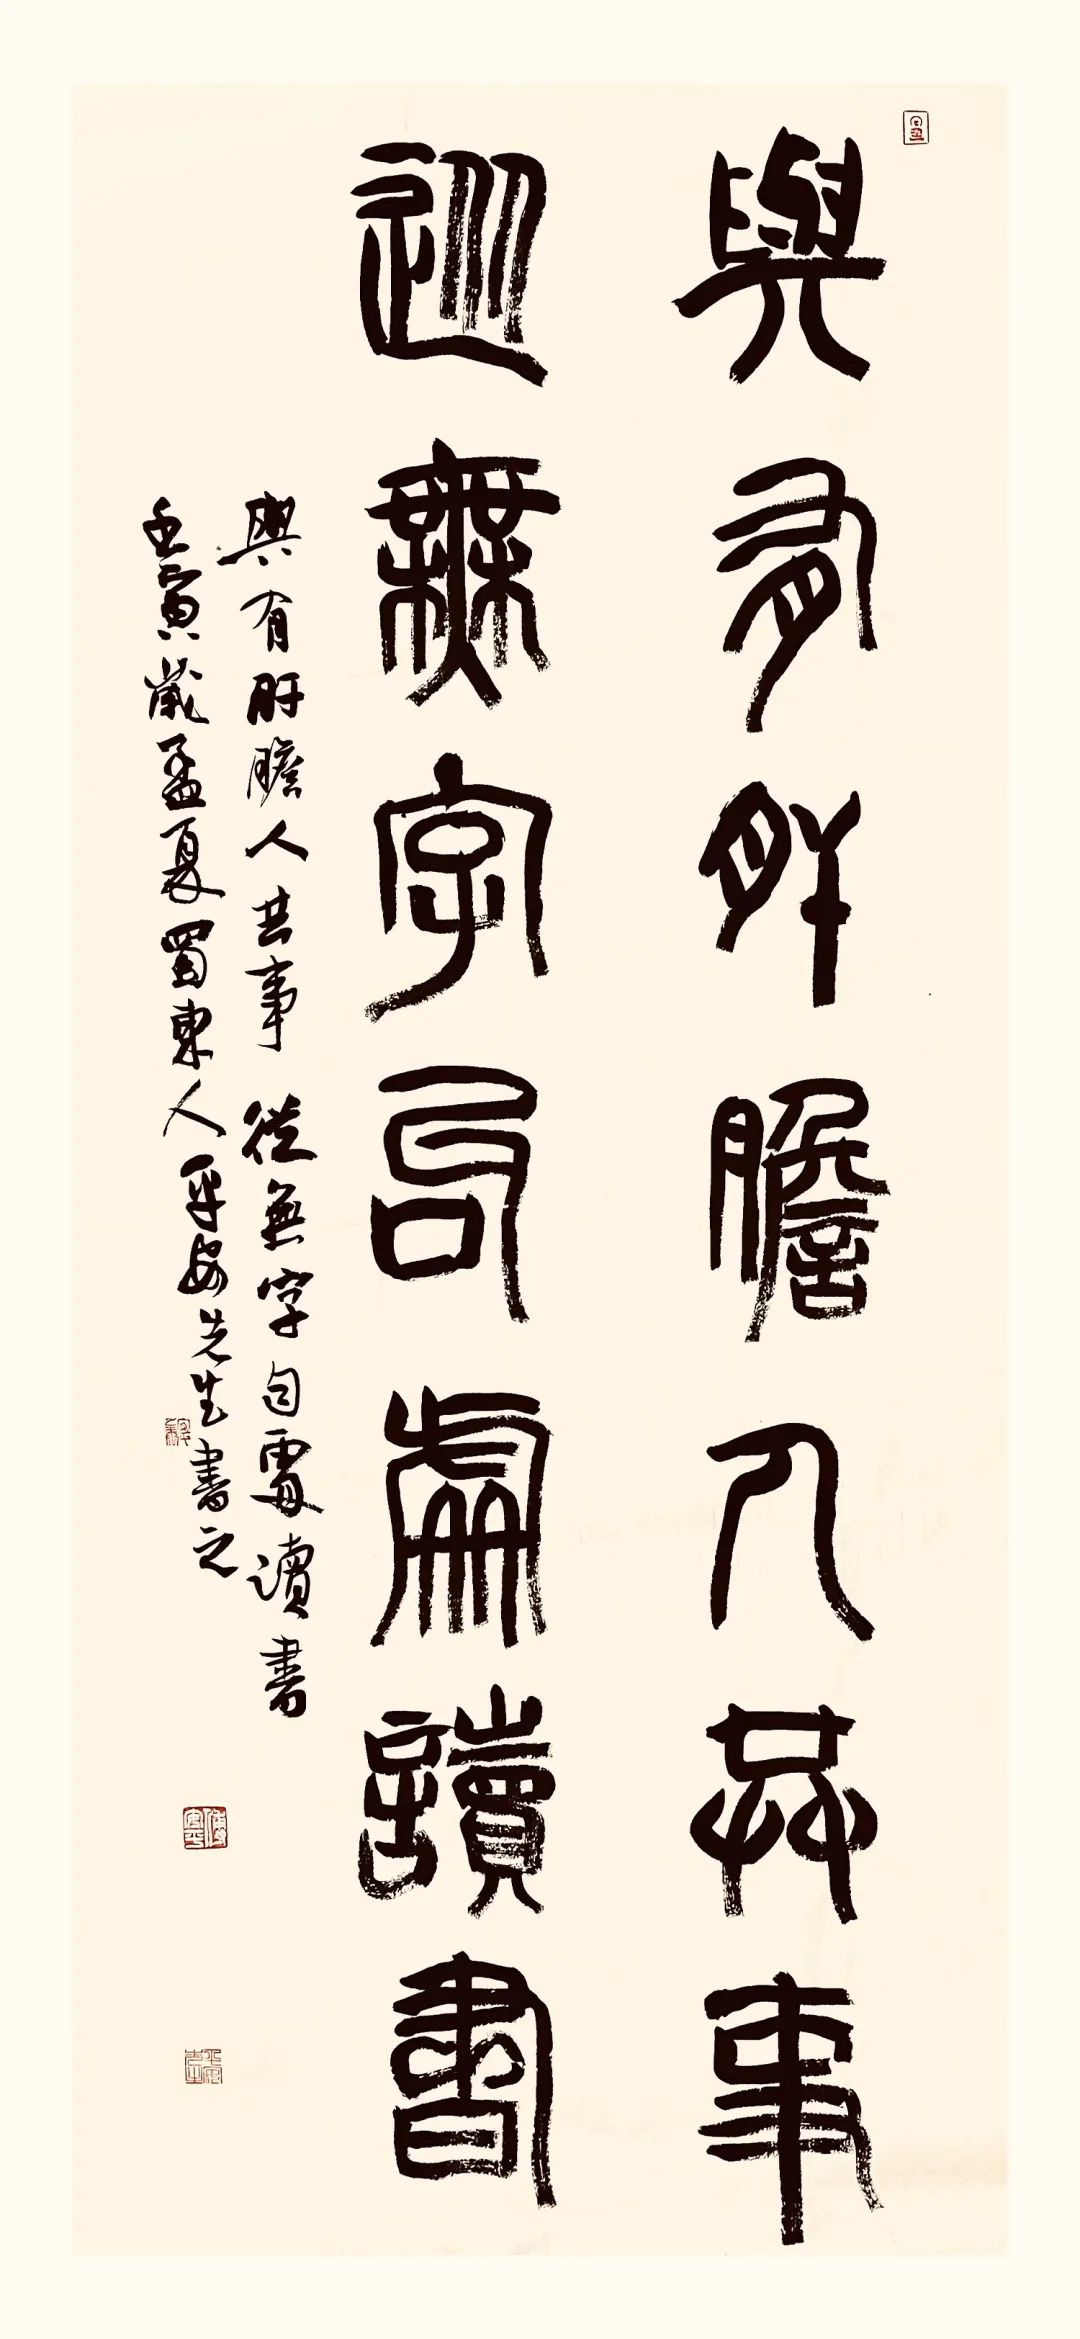 與有肝膽人共事
從無字句處讀書
與有肝膽人共事 從無字句處讀書
壬寅歲孟夏蜀東人平安先生書之